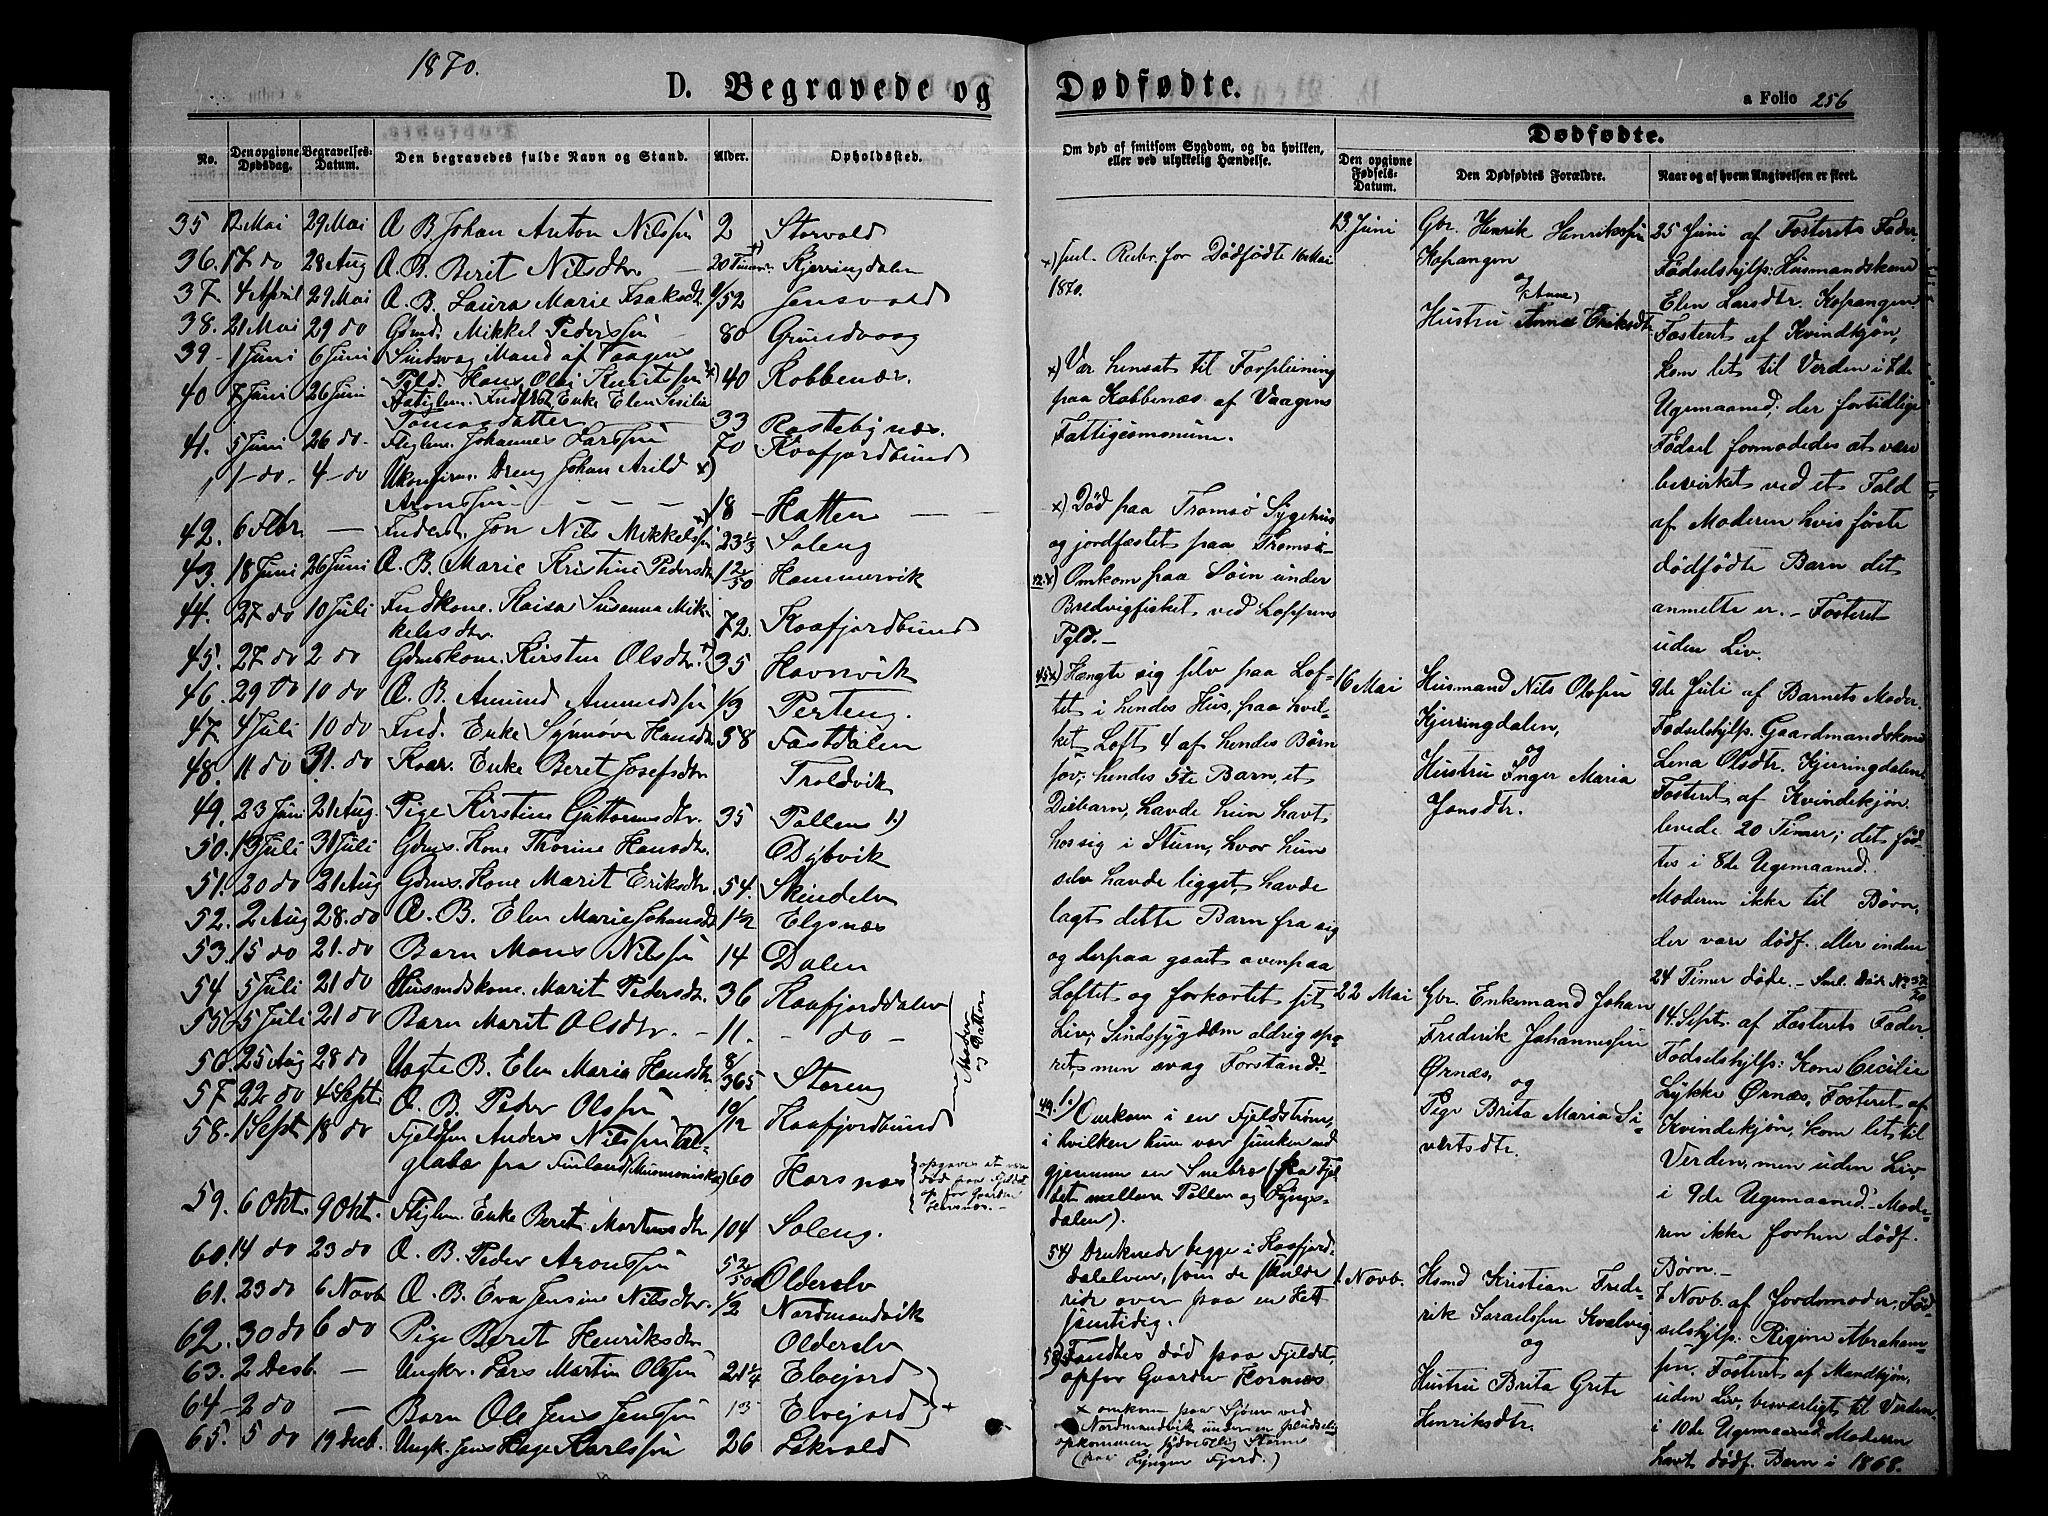 1870.
D. Begravede og
No.
Den opgivne Dødsdag.
Begravelses-Datum.
Den begravedes fulde Navn og Stand.
Alder.
Opholdssted.
35 12 Mai 29 Mai Æ. B. Johan Anton Nilssøn 2 Storvold
36. 17 do 28 Aug Æ. B. Berit Nilsdtr. 20 Timer x) Kjerringdalen
37. 4 April 29 Mai Æ. B. Laura Marie Isaksdtr. 1/52 Jensvold
38. 21 Mai 29 do Gdmd. Mikkel Pederssøn 80 Grundvaag
39 1 Juni 6 Juni Sindsvag Mand af Vaagens
Pgld. Hans Olai Knuts søn x) 40 Kobbenæs.
40 7 Juni 26 Juni Fattiglem. Enke Elen Sesilia
Tomasdatter 33 Rastebynæs.
41. 5 Juni 26 do Ftiglem. Johannes Larssøn 70 Kaafjordbund
1 do 4 do Ukonfirm. Dreng Johan Arild x)
Aronssøn 18 Hatten
42. 6 Febr — Inderst. Jon Nils Mikkelssøn x) 23 1/3 Soleng
43. 18 Juni 26 Juni Æ. B. Marie Kristine Pedersdtr 12/50 Hammervik
44. 27 do 10 Juli Indkone. Kaisa Susanna Mik-
kelsdtr. 72. Kaafjordbund
45. 27 do 2 do Gdmskone. Kirsten Olsdtr. x) 35 Havnvik
46. 29 do 10 do Æ. B. Amund Amundssøn 1/3 Perteng.
47. 4 Juli 10 do Ind. Enke Synnøve Hansdtr 58 Fastdalen
48. 11 do 31. do Kaar. Enke Beret Josefsdtr Troldvik
49. 23 Juni 21 Aug. Pige Kirstine Guttormsdtr. 35 Pollens 1.)
50. 13 Juli 31 Juli Gdms. Kone Thorine Hansdtr. Dybvik
51. 20 do 21 Aug Gdms. Kone Marit Eriksdtr. 54. Skindelv
52. 2 Aug 28. do Æ. B. Elen Marie Johansdtr 1 1/2 Elgsnæs
53. 15 do 21. do Barn Mons Nilssøn 14 Dalen
54 5 Juli 21 do Husmdskone. Marit Pedersdtr. 36 Kaafjorddalen
55 5 Juli 21 do Barn Marit Olsdtr. 11. do
Moder og Datter
56. 25 Aug 28 do Uægte B. Elen Maria Hansdtr. 8/365 Storeng
57. 22 do 4 Septr Æ. B. Peder Olssøn 10/12 Kaafjordbund
58. 1 Sept 18 do Fjeldfin Anders Nilssøn
fra Finland (Muonioniska) 60 Horsnæs
59. 6 Okt. 9 Okt. Ftiglem Enke Beret Mortensdtr 104 Soleng.
60. 14 do 23 do Æ. B. Peder Aronssøn 52/50 Olderelv
61. 23 do 6 Novb Æ. B. Eva Jensine Nilsdtr. 1/2 Nordmandvik
62. 30 do 6 do Pige Beret Henriksdtr. Olderelv
63. 2 Desb. — Ungkr. Lars Martin Olssøn 21 1/4 Elvejord
64 2 do — Barn Ole Jens Jenssøn 13 Elvejord x
65. 5 do 19 Decb. Ungk. Jens Hage Karlssøn 26 Lakvold
Dødfødte.
a Folio 256
Om død af smitsom Sygdom, og da hvilken,
eller ved ulykkelig Hændelse.
x) sml. Rubr. for Dødfødte 16 Mai
1870.
x) Var hensat til Forpleining
paa Kobbenæs af Vaagens
Fattigcommune.
x) Død paa Tromsø Sygehus
og jordfæstet paa Tromsø.
42. x) Omkom paa Søen under
Bredvigfisket ved Loppens
Pgld.
45 x) Hængte sig selv paa Lof-
tet i hendes Hus, paa hvil-
ket Loft 4 af hendes Børn
sov; hendes 5te Barn, et
Diebarn, havde hun havt
hos sig i Stuen, hvor hun
selv havde ligget, havde
lagt dette Barn fra sig
og derpaa gaaet ovenpaa
Loftet og forkortet sit
Liv; Sindssygdom aldrig spo-
ret, men svag Forstand.
49. 1.) Omkom i en Fjeldstrøm,
i hvilken hun var sunken ned
gjennem en Snebræ (paa Fjel-
det mellem Pollen og Lyngs-
dalen).
54) Druknede begge i Kaafjord-
dalelven, som de skulde
ride over paa en Hest
samtidig.
58) Fandtes død paa Fjeldet,
opfor Gaarden Horsnæs
x omkom paa Sjøen ved
Nordmandvik under en pludselig
opkommen sydvestlig Storm
(paa Lyngen Fjord.)
Dødfødte.
Den opgivne Fødsels-Datum.
Den Dødfødtes Forældre.
Naar og af hvem Angivelsen er skeet.
13 Juni
Gbr. Henrik Henrikssøn
Kopangen
og
(Anne)
Hustru Anne Eriksdtr
25 Juni af Fosterets Fader.
Fødselshjelp: Husmandskone
Elen Larsdtr. Kopangen
Fosteret af Kvindkjøn,
kom let til Verden i 7de
Ugemaaned; der fortidlige
Fødsel formodedes at være
bevirket ved et Fald
af Moderen hvis første
dødfødte Barn det
anmelte er. – Fosteret
uden Liv.
16 Mai
Husmand Nils Olssøn
Kjerringdalen,
og
Hustru Inger Maria
Jonsdtr.
9de Juli af Barnets Moder.
Fødselshjlp: Gaardmandskone
Lena Olsdtr. Kjerringdalen
Fosteret af Kvindekjøn
levede 20 Timer; det fød-
tes i 8de Ugemaaned.
Moderen ikke til Børn,
der vare dødf. eller inden
24 Timer døde. – Sml. Døde No 36
22 Mai
Gbr. Enkemand Johan
Frederik Johannessøn
Ørnæs,
og
Pige Brita Maria Si-
vertsdtr.
14. Sept. af Fosterets Fader
Fødselshjlp: Kone Cecilie
Lykke Ørnæs, Fosteret af
Kvindekjøn, kom let til
Verden, men uden Liv,
i 9de Ugemaaned. Mode-
ren ikke forhen dødf.
Børn. –
1 Novb.
Hsmd Kristian Frede-
rik Israelssøn Kvalvig
og
Hustru Brita Grete
Henriksdtr.
7 Novb. af Jordemoder, Fød-
selshjlp: Regine Abraham-
sen. Fosteret af Mandkjøn,
uden Liv, besværligt til Verden
i 10de Ugemaaned. Moderen
havt dødf. Barn i 1868.